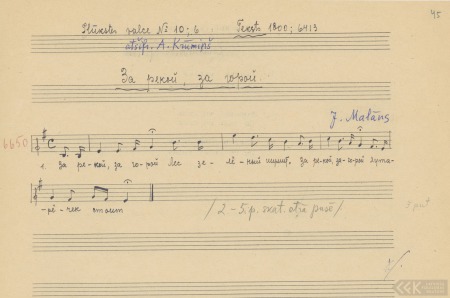 45
Plūksnes valce № 10; 6 Teksti 1800; 6413
atšifr. A. Krūmiņš
За рекой, за горой
J. Matāns
6650
1. За ре-кой, за го-рой лес зе-лё-ный шумит. За рекой, за горой хута-
-рё-чек стоит
/2-5.p. skat. otrā pusē/